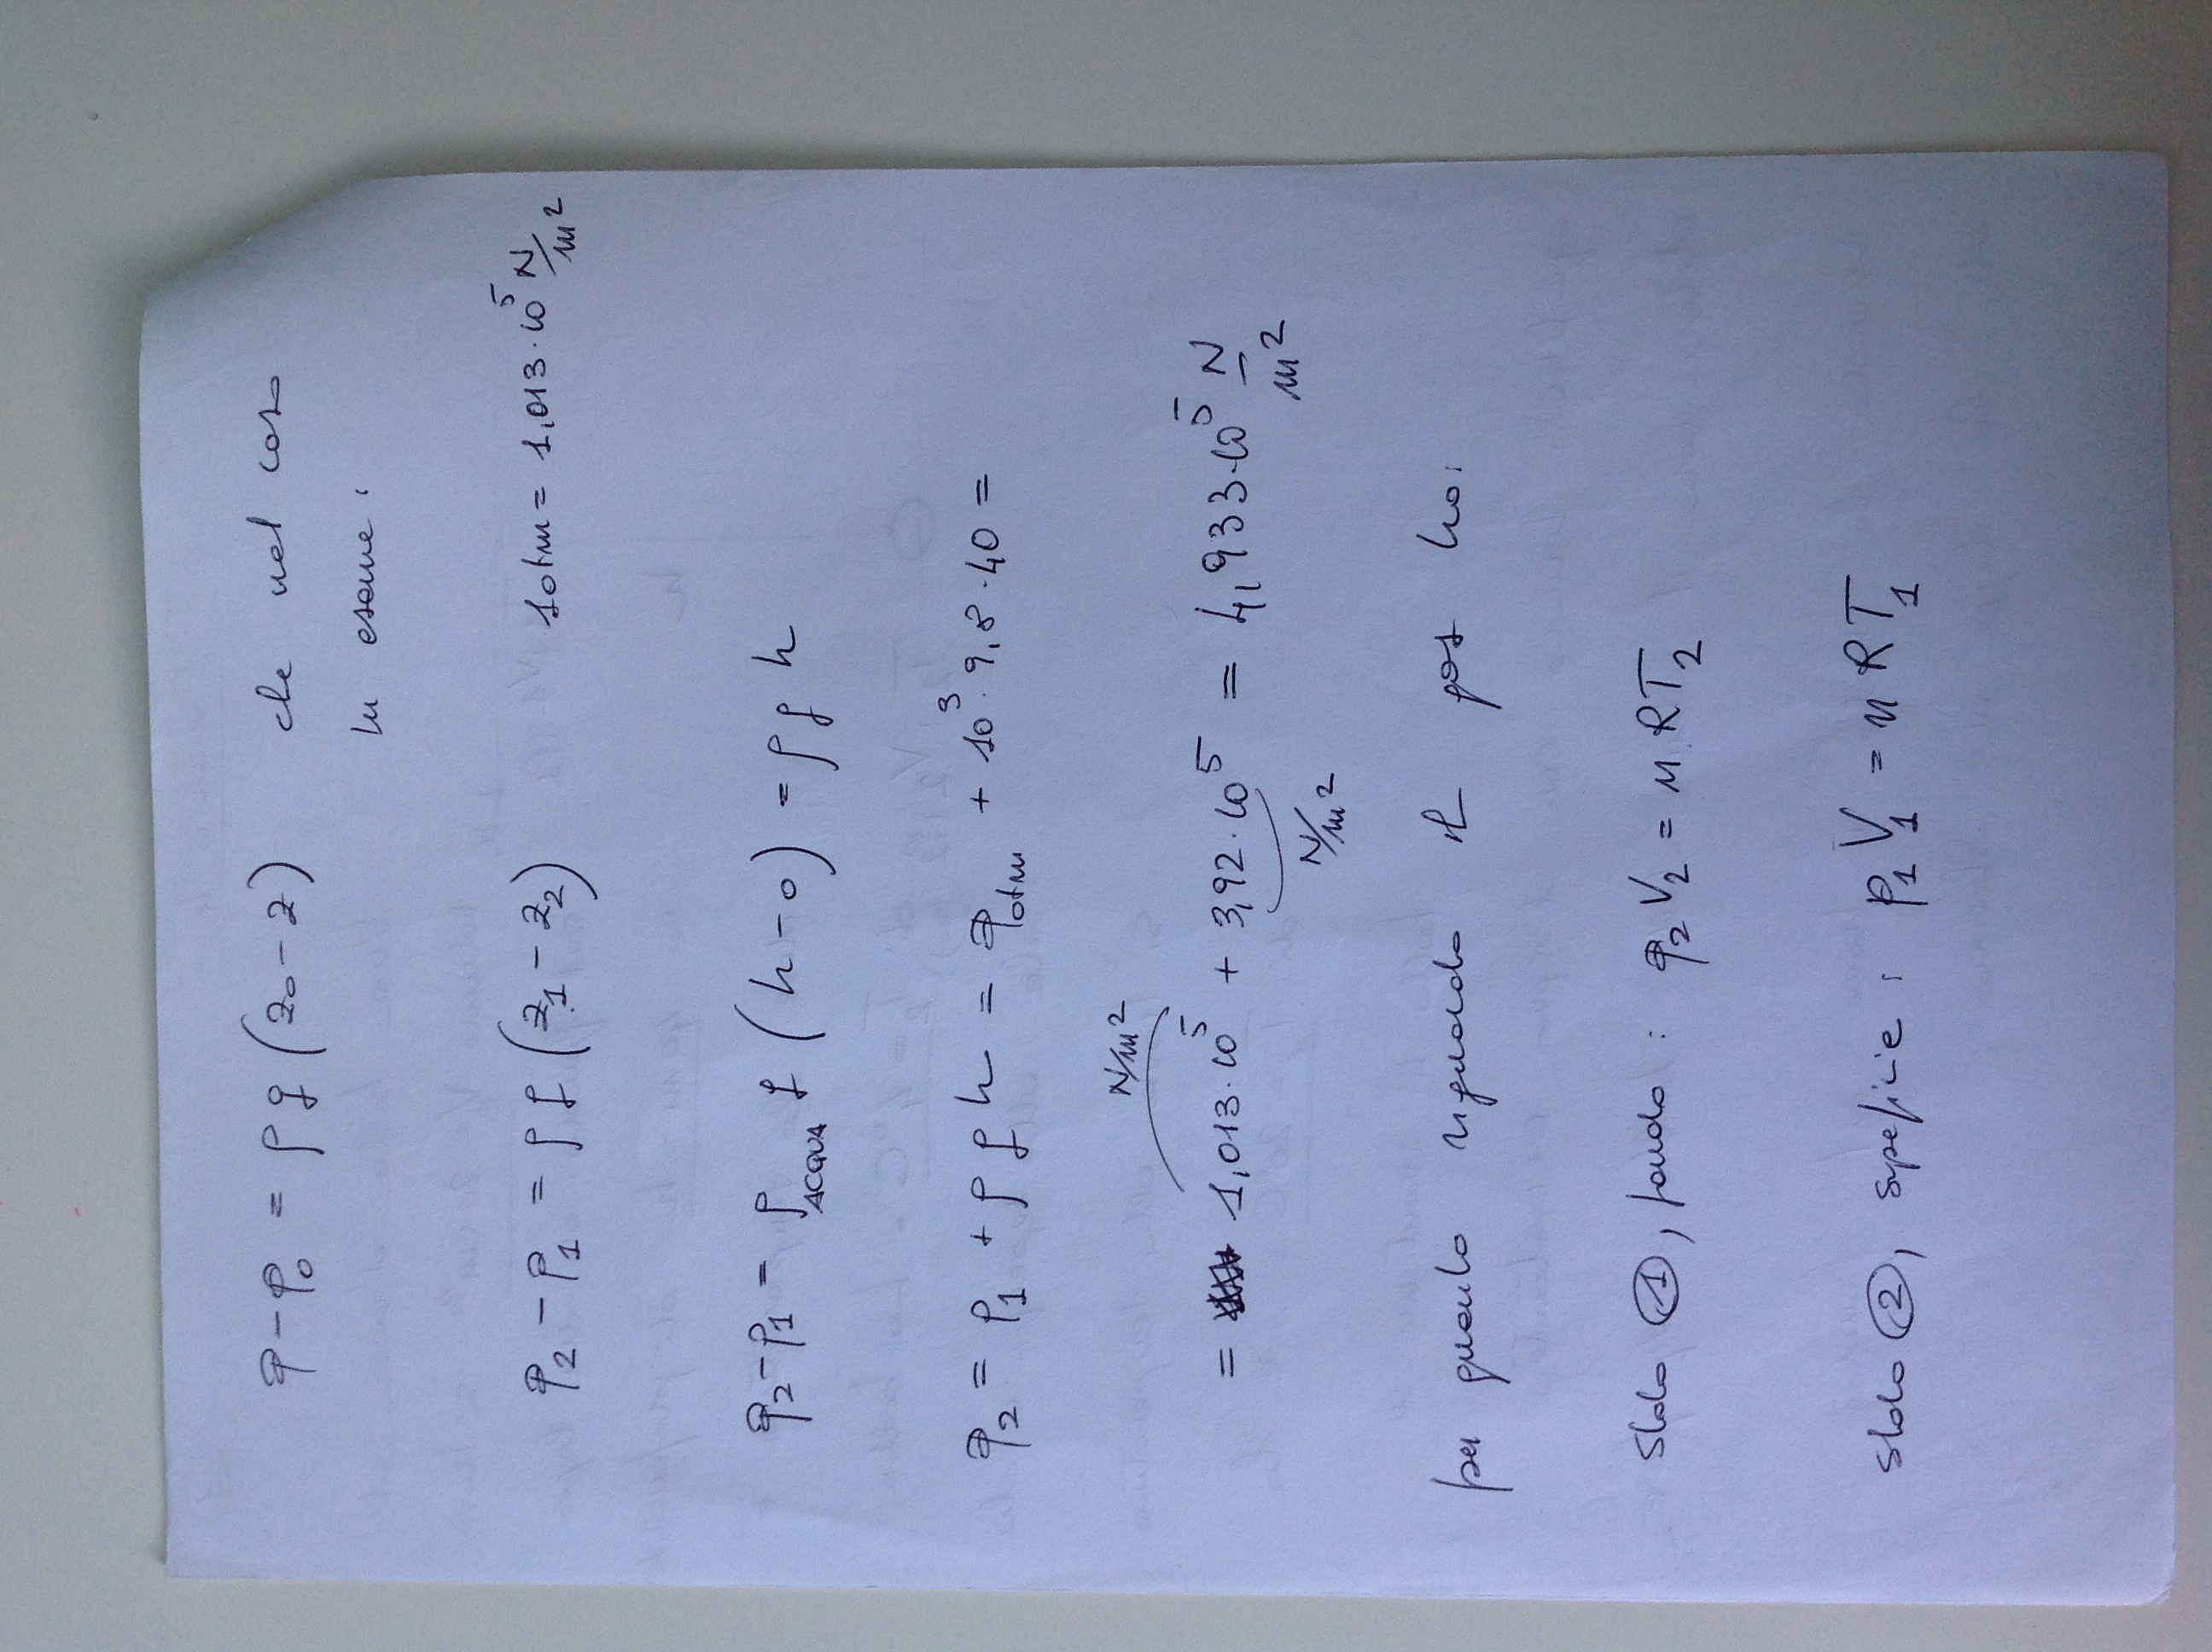 p - p₀ = ρ g (z₀ - z) che nel caso
in esame:
p₂ - p₁ = ρ g (z₁ - z₂) 1 atm = 1,013·10⁵ N/m²
p₂ - p₁ = ρ_ACQUA g (h - 0) = ρ g h
p₂ = p₁ + ρ g h = p_atm + 10³·9,8·40 =
N/m²
= 1,013·10⁵ + 3,92·10⁵ = 4,933·10⁵ N/m²
N/m²
per quanto riguarda il gas ho:
Stato ①, fondo: p₂V₂ = nRT₂
Stato ②, superficie: p₁V₁ = nRT₁